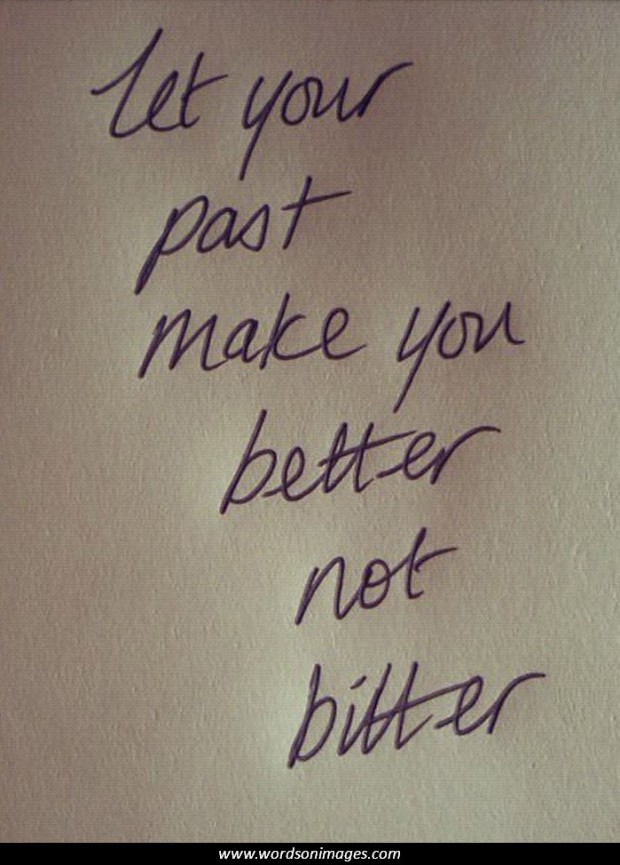 let your
past
make you
better
not
bitter
www.wordsonimages.com